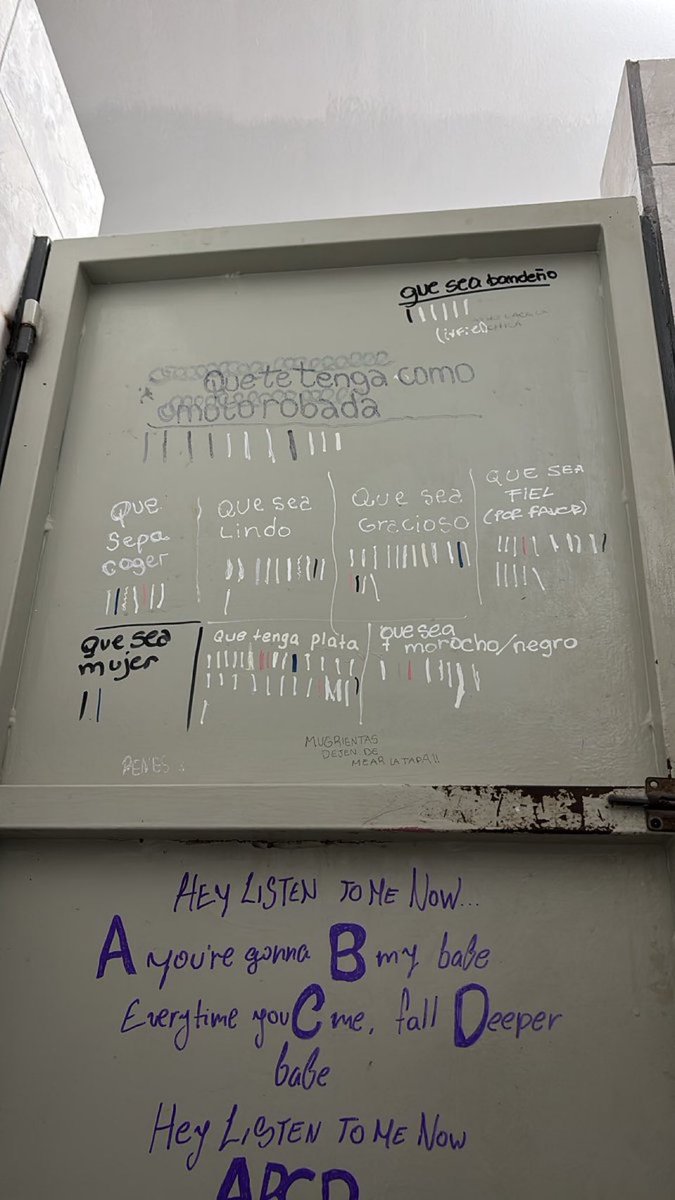 que sea bandeño
(infiel)
Que te tenga como
moto robada
Que
sepa
coger
Que sea
Lindo
Que sea
Gracioso
QUE SEA
FIEL
(POR FAVOR)
Que sea
mujer
Que tenga plata
que sea
morocho/negro
MUGRIENTAS
DEJEN DE
MEAR LA TAPA!!
HEY LISTEN TO ME NOW...
A you're gonna B my babe
Everytime you C me, fall Deeper
babe
Hey LISTEN TO ME NOW
ABCD